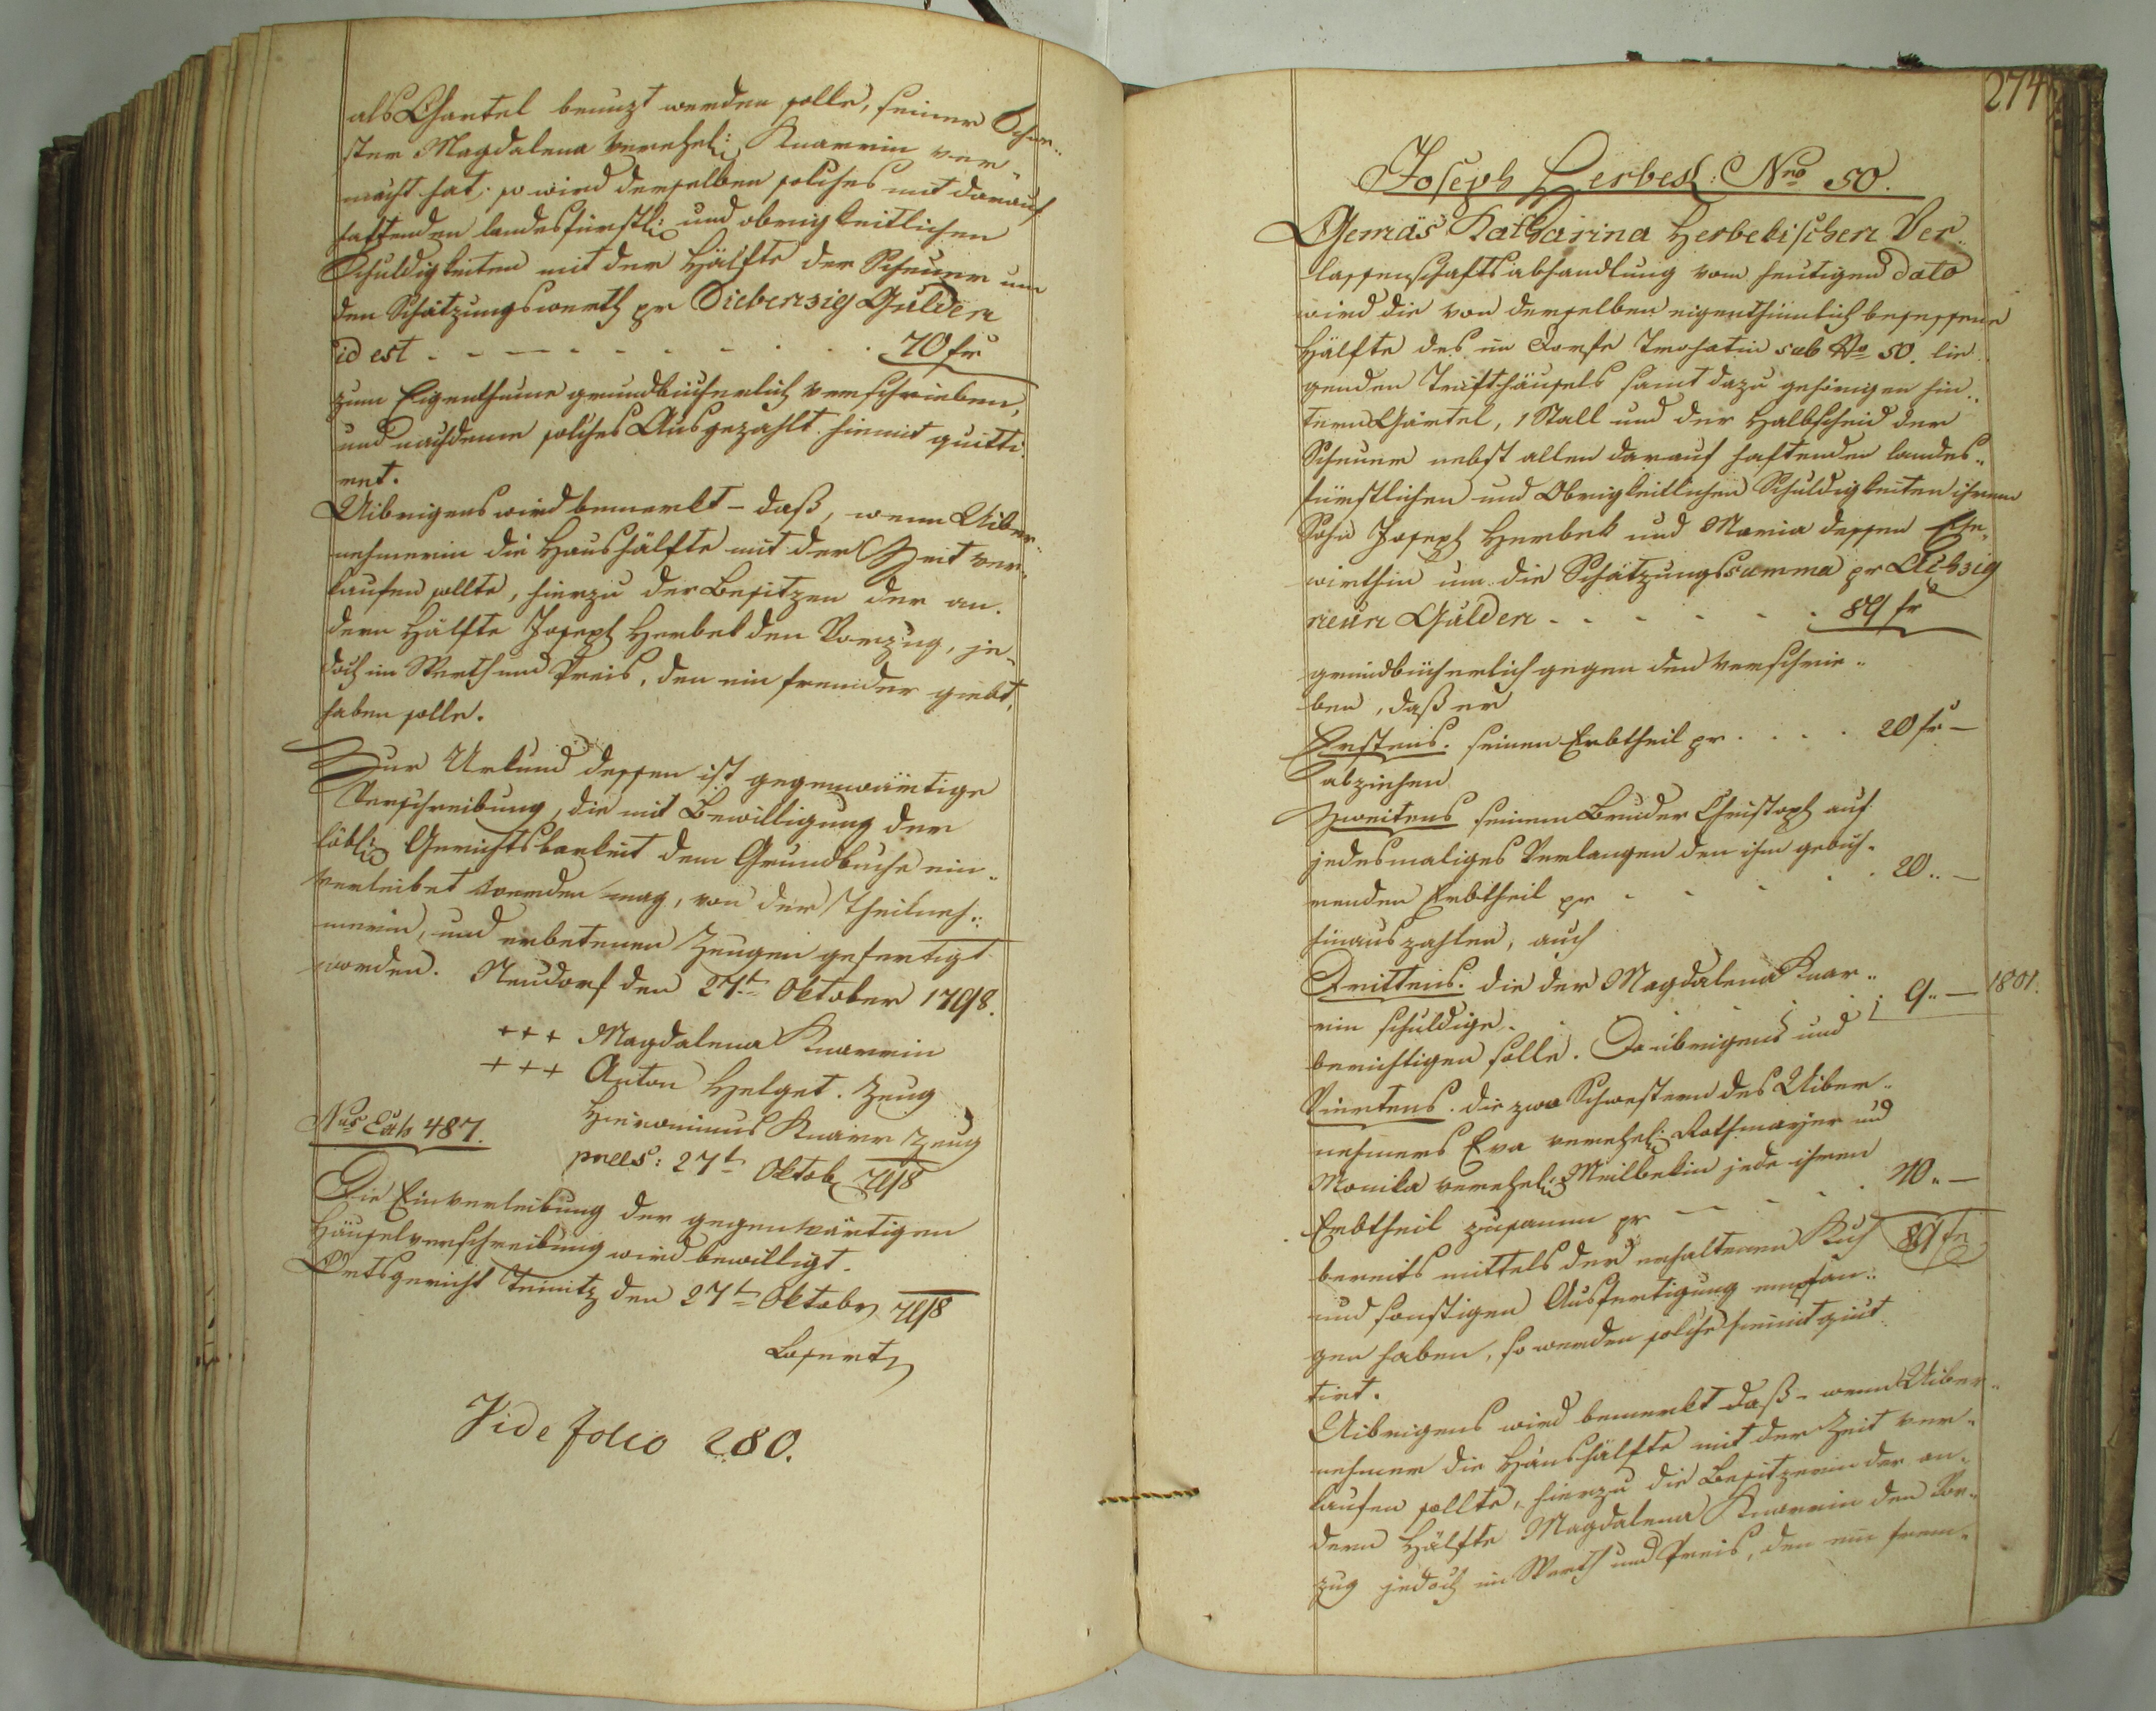 als Gartel benuzt werden solle, seiner Schwe..
ster Magdalena verehel: Knarrin ver..
macht hat; so wird derselben solches mit darauf
haftenden landesfürstl: und obrigkeitlichen
Schuldigkeiten mit der Hälfte der Scheuer um
den Schätzungswerth pr Siebenzig Gulden
id est - - - - - - - - - 70 fr
zum Eigenthume grundbücherlich verschrieben,
und nachdeme solches Ausgezahlt hiemit quitti-
ret.
Uibrigens wird bemerkt - daß, wenn Uiber..
nehmerin die Haushälfte mit der Zeit ver..
kaufen sollte, hierzu der Besitzer der an-
dern Hälfte Joseph Herbek den Vorzug, je-
doch im Werth und Preis, den ein fremder giebt,
haben solle.
Zur Urkund dessen ist gegenwärtige
Verschreibung, die mit Bewilligung der
löbl: Gerichtsbarkeit dem Grundbuche ein..
verleibet werden mag, von der Theilneh..
merin, und erbetenen Zeugen gefertigt
worden. Neudorf den 27t Oktober 1798.
+++ Magdalena Knarrin
+++ Anton Helget. Zeug
Hieronimus Knarr Zeug
Nus Exh 487.
præs: 27t Oktob 798
Die Einverleibung der gegenwärtigen
Häuselverschreibung wird bewilligt.
Ortsgericht den 27t Oktober 798
Losert
Vide folio 280.
274
Joseph Herbek: Nro 50.
Gemäs Katharina Herbekischen Ver..
lassenschaftsabhandlung vom heutigen dato
wird die von derselben eigenthümlich besessene
Hälfte des im Dorfe sub No 50. lie..
genden Trifthäusels samt dazu gehörigen hin..
tern Gärtel, 1 Stall und der Halbscheid der
Scheuer nebst allen darauf haftenden landes..
fürstlichen und Obrigkeitlichen Schuldigkeiten ihrem
Sohn Joseph Herbek und Maria dessen Ehe..
wirthin um die Schätzungssumma pr Achzig
neun Gulden - - - - - - 89 fr
grundbücherlich gegen den verschrie..
ben, daß er
Erstens. seinen Erbtheil pr . . . . 20 fr —
abziehen
Zweitens seinem Bruder Christoph auf
jedesmaliges Verlangen den ihm gebüh..
renden Erbtheil pr - - - - 20.. —
hinauszahlen, auch
Drittens. die der Magdalena Knar..
rin schuldige . . . . 9.. — 1801.
berichtigen solle. Da übrigens und
Viertens. die zwo Schwestern des Uiber..
nehmers Eva verehel: Rothmayer und
Monika verehel: Meilbekin jede ihren
Erbtheil zusamm pr - - - - 40.. —
bereits mittels der erhaltenen Kuh 89 fr
und sonstigen Ausfertigung empfan..
gen haben, so werden solche hiemit quit
tirt.
Uibrigens wird bemerkt daß - wenn Uiber..
nehmer die Haushälfte mit der Zeit ver..
kaufen sollte, hierzu die Besitzerin der an..
dern Hälfte Magdalena Knarrin den Vor..
zug jedoch im Werth und Preis, den ein frem..